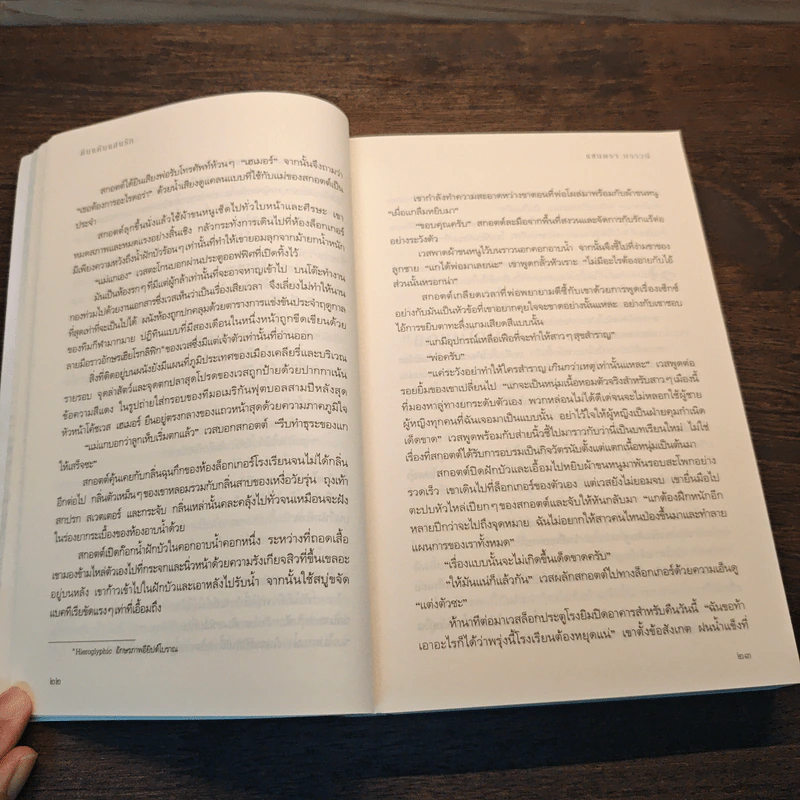 คินบคืนขอนรัก
สกอตต์ได้ยินเสียงพ่อรับโทรศัพท์ห้วนๆ “เฮเมอร์” จากนั้นจึงถามว่า
“เธอต้องการอะไรดอร่า” ด้วยน้ำเสียงดูแคลนแบบที่ใช้กับแม่ของสกอตต์เป็น
ประจำ
สกอตต์ลุกขึ้นนั่งแล้วใช้ผ้าขนหนูเช็ดไปทั่วใบหน้าและศีรษะ เขา
หมดสภาพและหมดแรงอย่างสิ้นเชิง กลัวกระทั่งการเดินไปที่ห้องล็อกเกอร์
มีเพียงความหวังถึงน้ำฝักบัวร้อนๆ เท่านั้นที่ทำให้เขายอมลุกจากม้ายกน้ำหนัก
“แม่แกเอง” เวสตะโกนบอกผ่านประตูออฟฟิศที่เปิดทิ้งไว้
มันเป็นห้องรกๆ ที่มีแต่ผู้กล้าเท่านั้นที่จะอาจหาญเข้าไป บนโต๊ะทำงาน
ท่วมไปด้วยงานเอกสารซึ่งเวสเห็นว่าเป็นเรื่องเสียเวลา จึงเลี่ยงไม่ทำให้นาน
ที่สุดเท่าที่จะเป็นไปได้ ผนังห้องถูกปกคลุมด้วยตารางการแข่งขันประจำฤดูกาล
ของทีมกีฬามากมาย ปฏิทินแบบที่มีสองเดือนในหนึ่งหน้าถูกขีดเขียนด้วย
ลายมือราวอักษรเฮียโรกลิฟิก* ของเวสซึ่งมีแต่เจ้าตัวเท่านั้นที่อ่านออก
สิ่งที่ติดอยู่บนผนังยังมีแผนที่ภูมิประเทศของเมืองเคลียรี่และบริเวณ
รายรอบ จุดล่าสัตว์และจุดตกปลาสุดโปรดของเวสถูกป้ายด้วยปากกาเน้น
ข้อความสีแดง ในรูปถ่ายใส่กรอบของทีมอเมริกันฟุตบอลสามปีหลังสุด
หัวหน้าโค้ชเวส เฮเมอร์ ยืนอยู่ตรงกลางของแถวหน้าสุดด้วยความภาคภูมิใจ
“แม่แกบอกว่าลูกเห็บเริ่มตกแล้ว” เวสบอกสกอตต์ “รีบทำธุระของแก
ให้เสร็จซะ”
สกอตต์คุ้นเคยกับกลิ่นฉุนกึกของห้องล็อกเกอร์โรงเรียนจนไม่ได้กลิ่น
อีกต่อไป กลิ่นตัวเหม็นๆ ของเขาหลอมรวมกับกลิ่นสาบของเหงื่อวัยรุ่น ถุงเท้า
สกปรก สเวตเตอร์ และกระจับ กลิ่นเหล่านั้นตลบคลุ้งไปทั่วจนเหมือนจะฝัง
ในร่องยากระเบื้องของห้องอาบน้ำด้วย
สกอตต์เปิดก๊อกน้ำฝักบัวในคอกอาบน้ำคอกหนึ่ง ระหว่างที่ถอดเสื้อ
เขามองข้ามไหล่ตัวเองไปที่กระจกและนิ่วหน้าด้วยความรังเกียจสิวที่ขึ้นเขลอะ
อยู่บนหลัง เขาก้าวเข้าไปในฝักบัวและเอาหลังไปรับน้ำ จากนั้นใช้สบู่ขจัด
แบคทีเรียขัดแรงๆ เท่าที่เอื้อมถึง
*Hieroglyphic อักษรภาพอียิปต์โบราณ
๒๒
แซนดรา บราวน์
เขากำลังทำความสะอาดหว่างขาตอนที่พ่อโผล่มาพร้อมกับผ้าขนหนู
“เผื่อแกลืมหยิบมา”
“ขอบคุณครับ” สกอตต์ละมือจากพื้นที่สงวนและจัดการกับรักแร้ต่อ
อย่างระวังตัว
เวสพาดผ้าขนหนูไว้บนราวนอกคอกอาบน้ำ จากนั้นจึงชี้ไปที่ง่ามขาของ
ลูกชาย “แกได้พ่อมาเลยนะ” เขาพูดกลั้วหัวเราะ “ไม่มีอะไรต้องอายกับไอ้
ส่วนนั้นหรอกน่า”
สกอตต์เกลียดเวลาที่พ่อพยายามตีซี้กับเขาด้วยการพูดเรื่องเซ็กซ์
อย่างกับมันเป็นหัวข้อที่เขาอยากคุยใจจะขาดอย่างนั้นแหละ อย่างกับเขาชอบ
ไอ้การขยิบตาทะลึ่งแกมเสียดสีแบบนั้น
“แกมีอุปกรณ์เหลือเฟือที่จะทำให้สาวๆ สุขสำราญ”
“พ่อครับ”
“แค่ระวังอย่าทำให้ใครสำราญ เกินกว่าเหตุ เท่านั้นแหละ” เวสพูดต่อ
รอยยิ้มของเขาเปลี่ยนไป “แกจะเป็นหนุ่มเนื้อหอมตัวจริงสำหรับสาวๆ เมืองนี้
ที่มองหาลู่ทางยกระดับตัวเอง พวกหล่อนไม่ได้ดีเด่จนจะไม่หลอกใช้ผู้ชาย
ผู้หญิงทุกคนที่ฉันเจอมาเป็นแบบนั้น อย่าไว้ใจให้ผู้หญิงเป็นฝ่ายคุมกำเนิด
เด็ดขาด” เวสพูดพร้อมกับส่ายนิ้วชี้ไปมาราวกับว่านี่เป็นบทเรียนใหม่ ไม่ใช่
เรื่องที่สกอตต์ได้รับการอบรมเป็นกิจวัตรนับตั้งแต่แตกเนื้อหนุ่มเป็นต้นมา
สกอตต์ปิดฝักบัวและเอื้อมไปหยิบผ้าขนหนูมาพันรอบสะโพกอย่าง
รวดเร็ว เขาเดินไปที่ล็อกเกอร์ของตัวเอง แต่เวสยังไม่ยอมจบ เขายื่นมือไป
ตะปบหัวไหล่เปียกๆ ของสกอตต์และจับให้หันกลับมา “แกต้องฝึกหนักอีก
หลายปีกว่าจะไปถึงจุดหมาย ฉันไม่อยากให้สาวคนไหนป่องขึ้นมาและทำลาย
แผนการของเราทั้งหมด”
“เรื่องแบบนั้นจะไม่เกิดขึ้นเด็ดขาดครับ”
“ให้มันแน่ก็แล้วกัน” เวสผลักสกอตต์ไปทางล็อกเกอร์ด้วยความเอ็นดู
“แต่งตัวซะ”
ห้านาทีต่อมาเวสล็อกประตูโรงยิมปิดอาคารสำหรับคืนวันนี้ “ฉันขอท้า
เอาอะไรก็ได้ว่าพรุ่งนี้โรงเรียนต้องหยุดแน่” เขาตั้งข้อสังเกต ฝนน้ำแข็งที่
๒๓